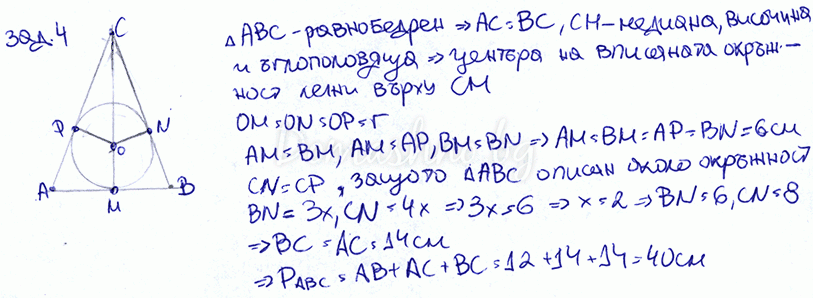 зад.4
△ABC - равнобедрен ⇒ AC = BC, CH - медиана, височина
и ъглополовяща ⇒ центъра на вписаната окръж-
ност лежи върху CM
OM = ON = OP = r
AM = BM, AM = AP, BM = BN ⇒ AM = BM = AP = BN = 6 см
CN = CP, защото △ABC описан около окръжност
BN = 3x, CN = 4x ⇒ 3x = 6 ⇒ x = 2 ⇒ BN = 6, CN = 8
⇒ BC = AC = 14 см
⇒ PABC = AB + AC + BC = 12 + 14 + 14 = 40 см
C
P
N
O
A
M
B